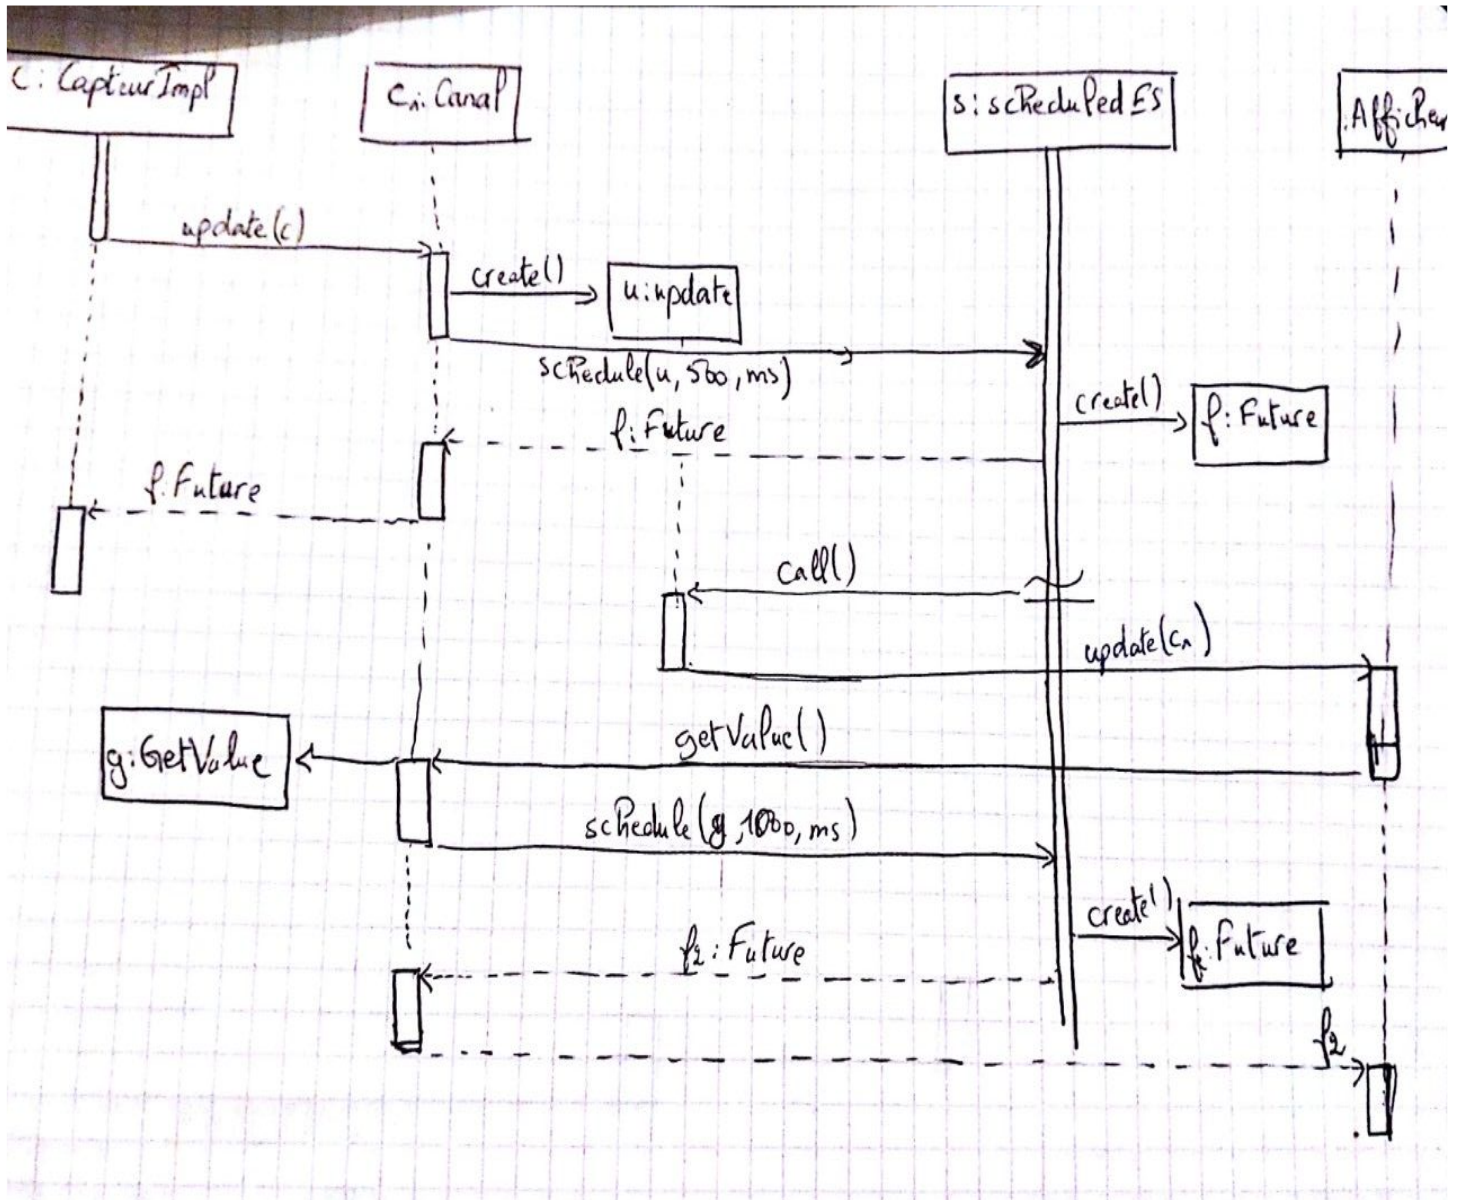 C: CapteurImpl
C1: Canal
s: scheduledES
:Afficheur
update(c)
create()
u: update
schedule(u, 500, ms)
create()
f: Future
f: Future
f: Future
call()
update(c1)
getValue()
g: GetValue
schedule(g, 1000, ms)
create()
Future
f2: Future
f2